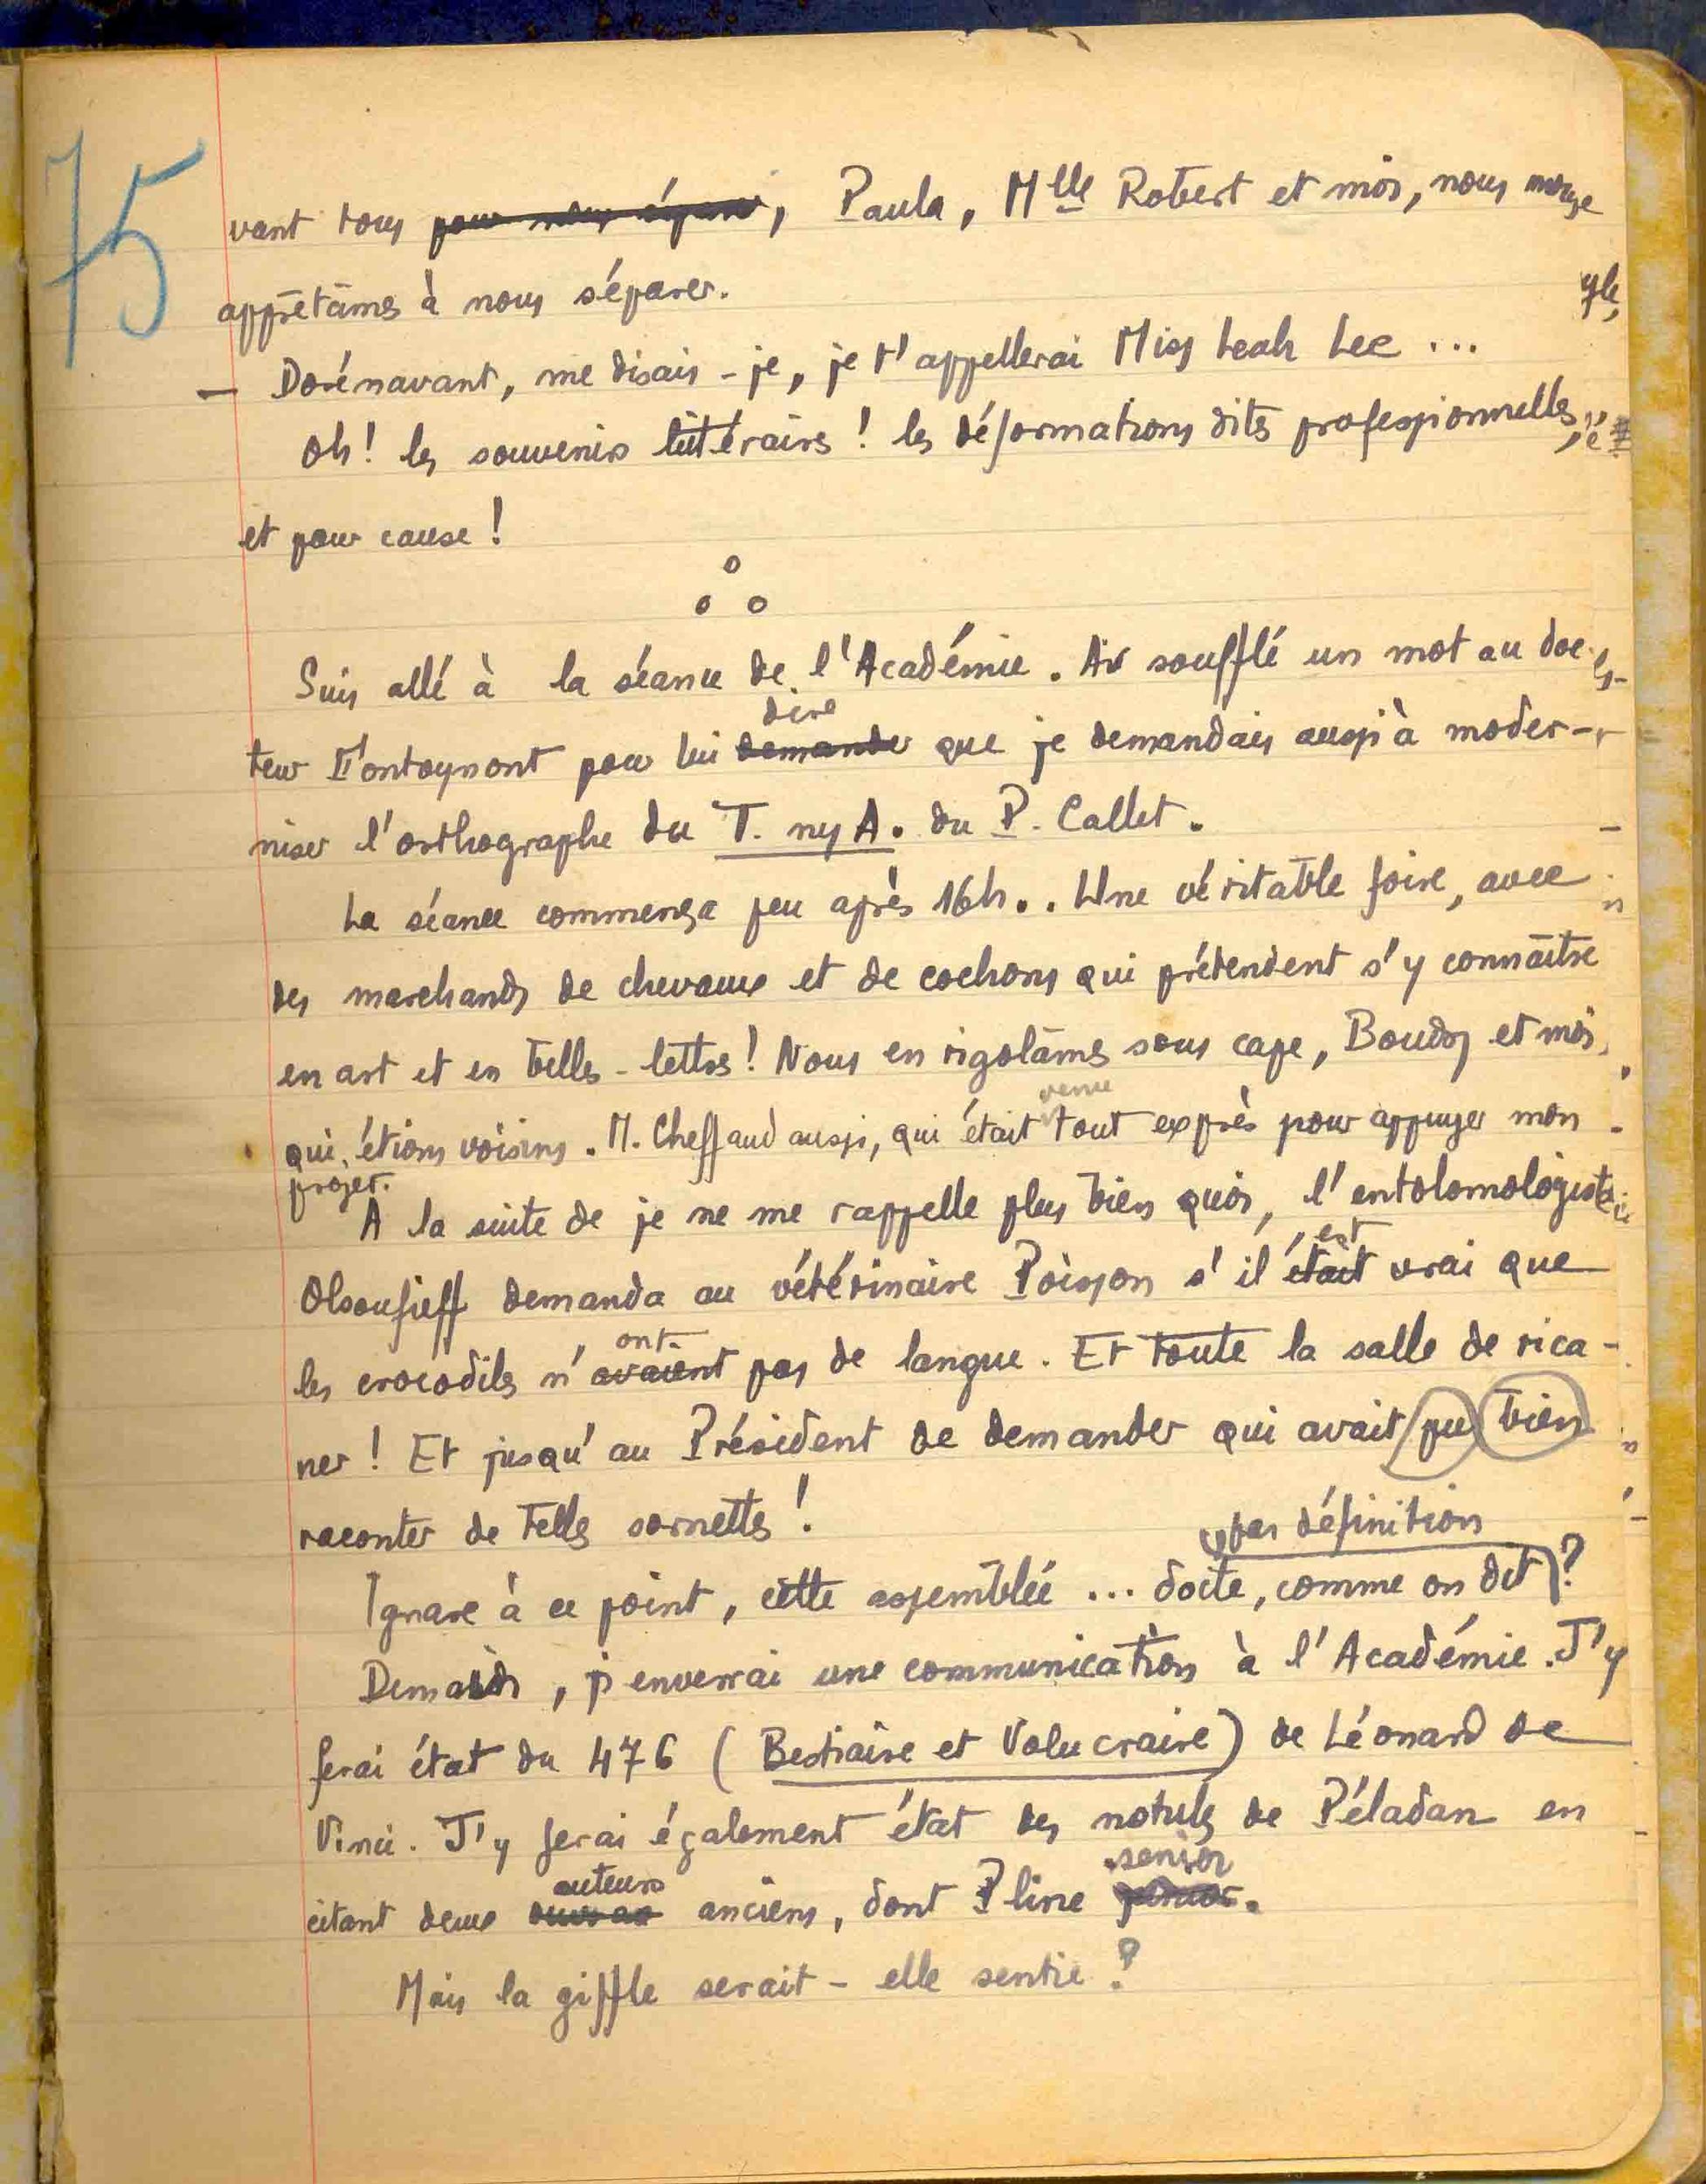 75
vant tous pour nous séparer, Paula, Mlle Robert et moi, nous nous
apprêtâmes à nous séparer.
— Dorénavant, me disais-je, je t'appellerai Miss Leah Lee ...
Oh! les souvenirs littéraires! les déformations dites professionnelles,
et pour cause!
Suis allé à la séance de l'Académie. Ai soufflé un mot au doc-
dire
teur Fontoynont pour lui demander que je demandais aussi à moder-
niser l'orthographe du T. ny A. du P. Callet.
La séance commença peu après 16h.. Une véritable foire, avec
des marchands de chevaux et de cochons qui prétendent s'y connaître
en art et en belles-lettres! Nous en rigolâmes sous cape, Boudry et moi,
venu
qui étions voisins. M. Cheffaud aussi, qui était tout exprès pour appuyer mon
projet.
A la suite de je ne me rappelle plus bien quoi, l'entolomologiste
est
Olsoufieff demanda au vétérinaire Poisson s'il était vrai que
ont
les crocodiles n'avaient pas de langue. Et toute la salle de rica-
ner! Et jusqu'au Président de demander qui avait pu bien
raconter de telles sornettes!
par définition
Ignare à ce point, cette assemblée ... docte, comme on dit?
Demain, j'enverrai une communication à l'Académie. J'y
ferai état du 476 (Bestiaire et Volucraire) de Léonard de
Vinci. J'y ferai également état des notules de Péladan en
auteurs senior
citant deux anciens, dont Pline junior.
Mais la giffle serait-elle sentie?